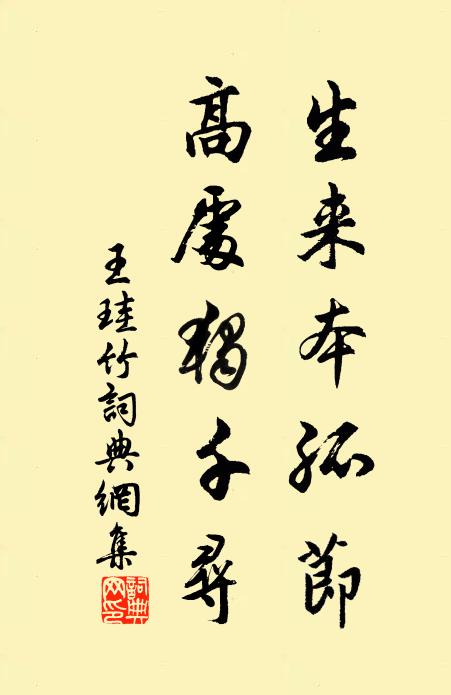 生来本孤節
高處獨千尋
王珪竹詞典網集
詞典網印